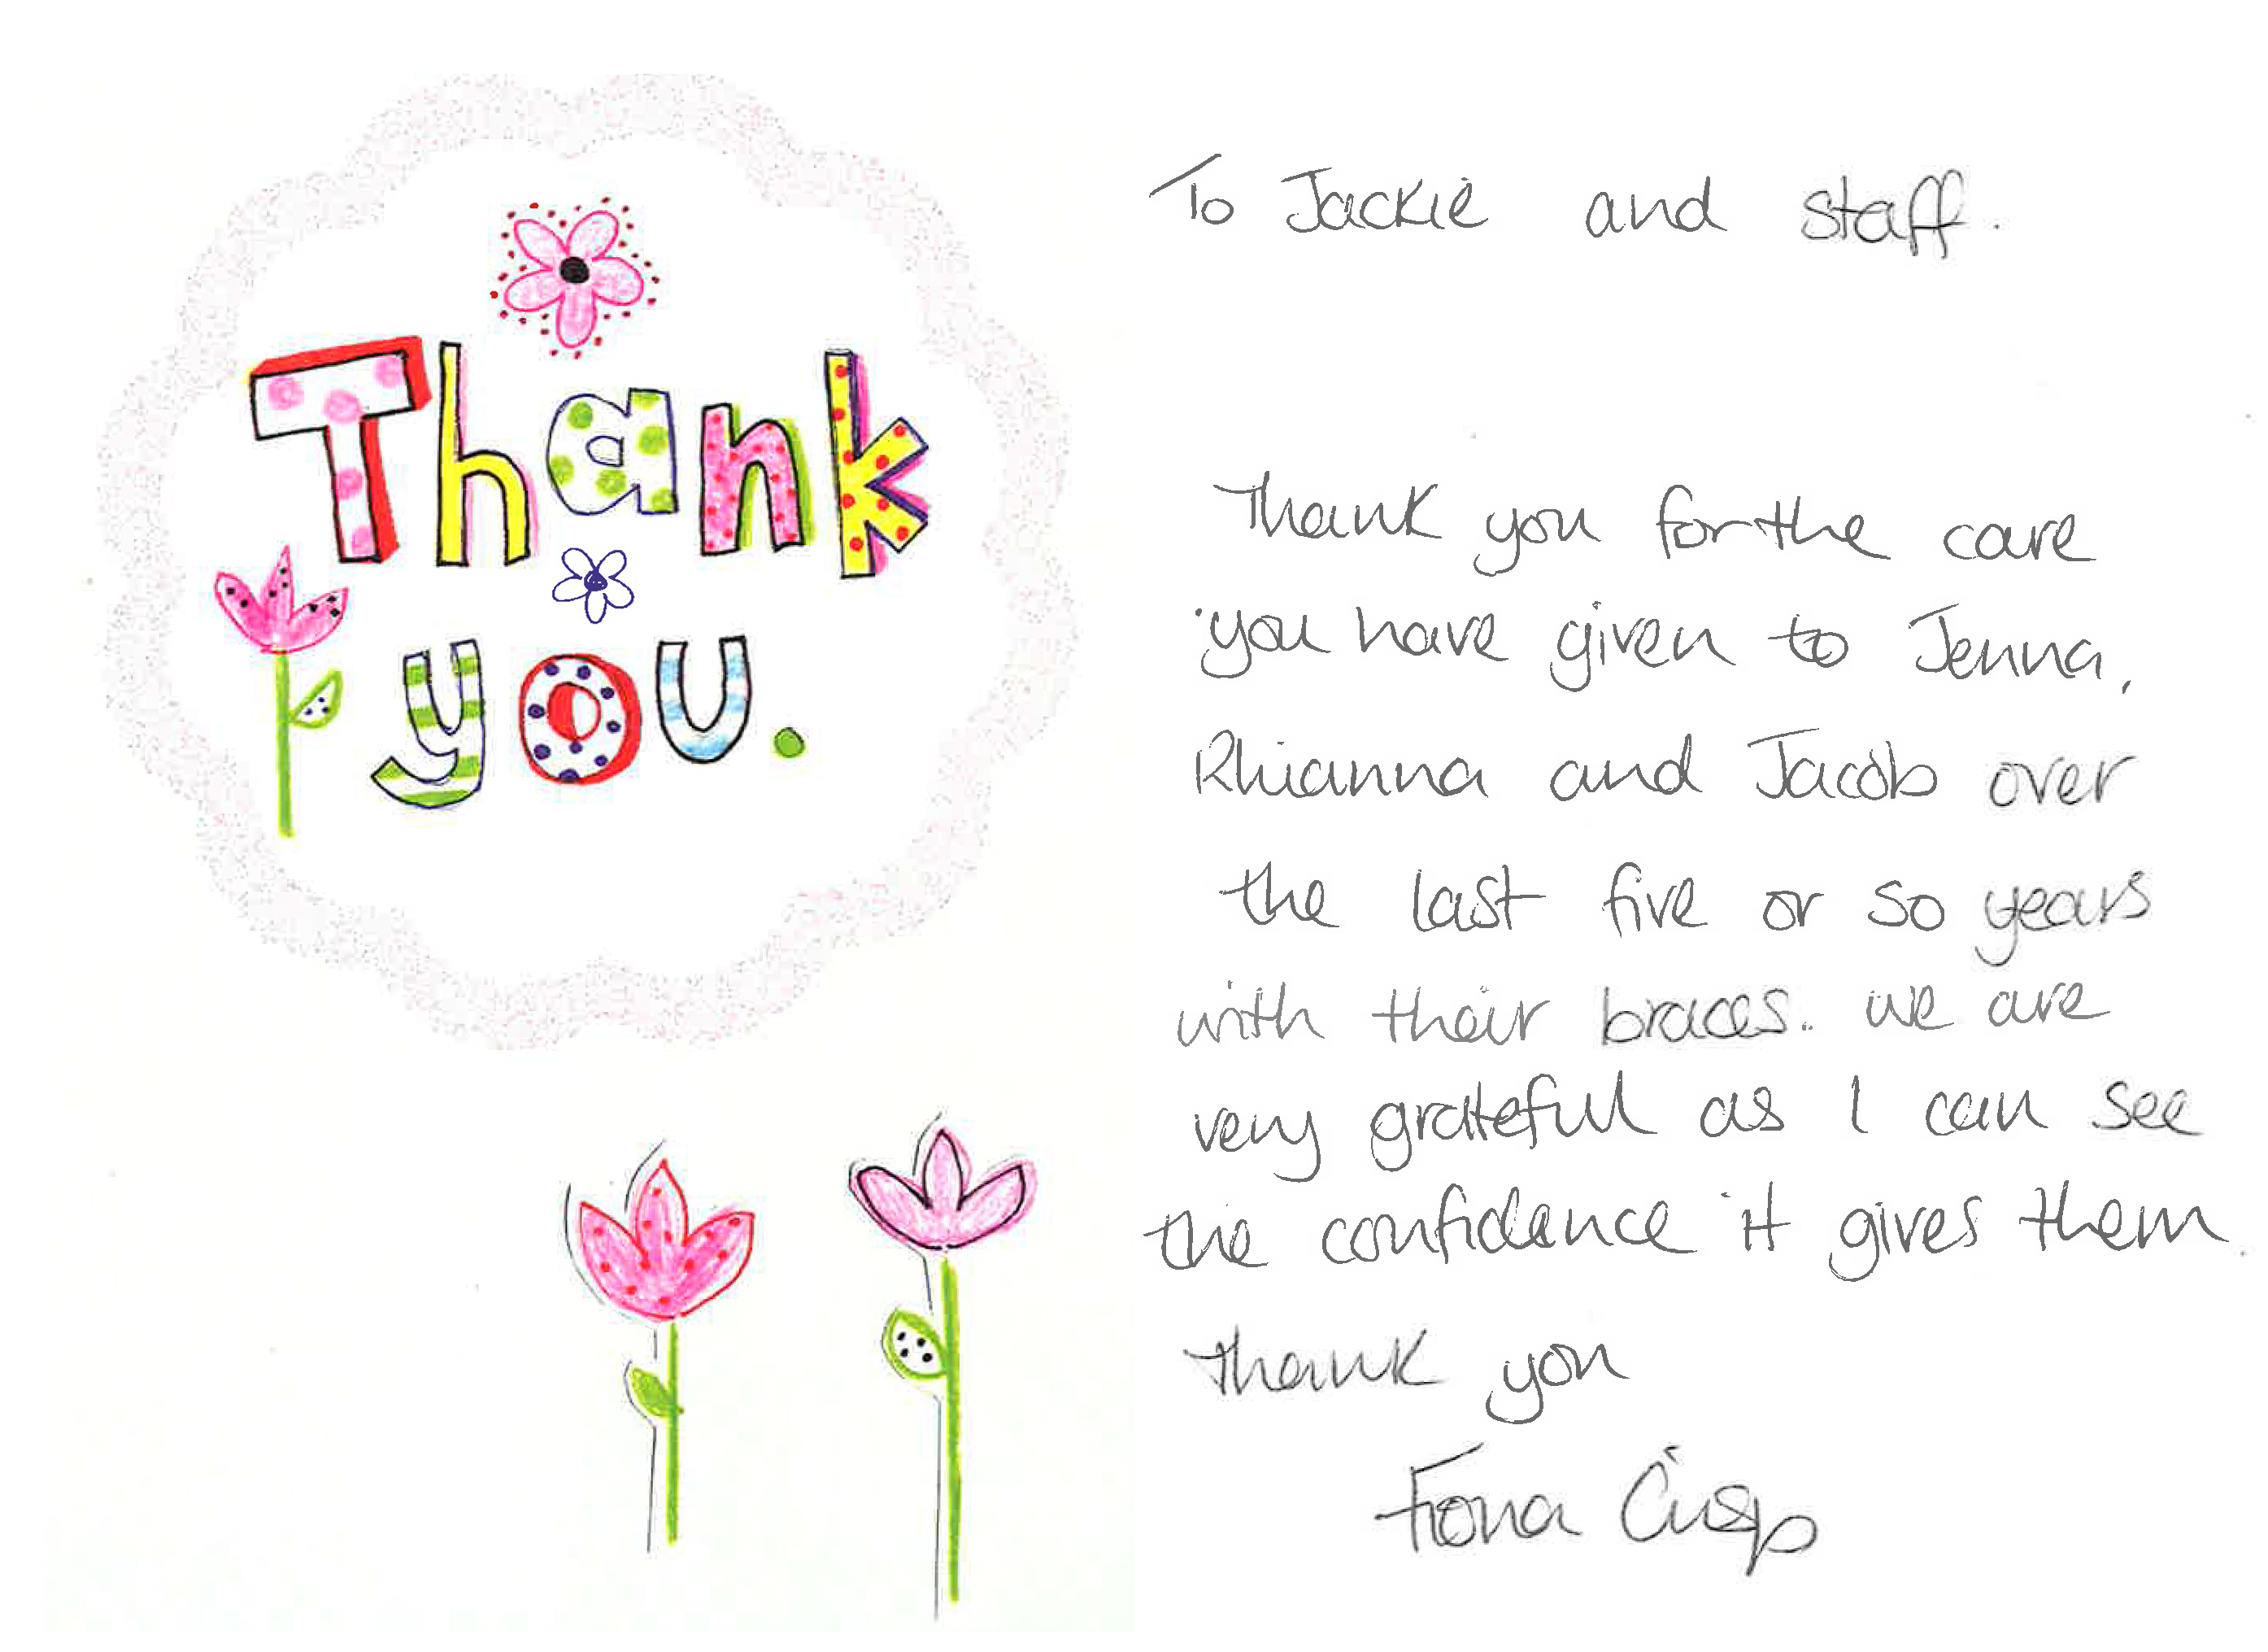 Thank
you.
To Jackie and staff.
Thank you for the care
you have given to Jenna,
Rhianna and Jacob over
the last five or so years
with their braces. we are
very grateful as I can see
the confidence it gives them.
Thank you
Fiona Crisp